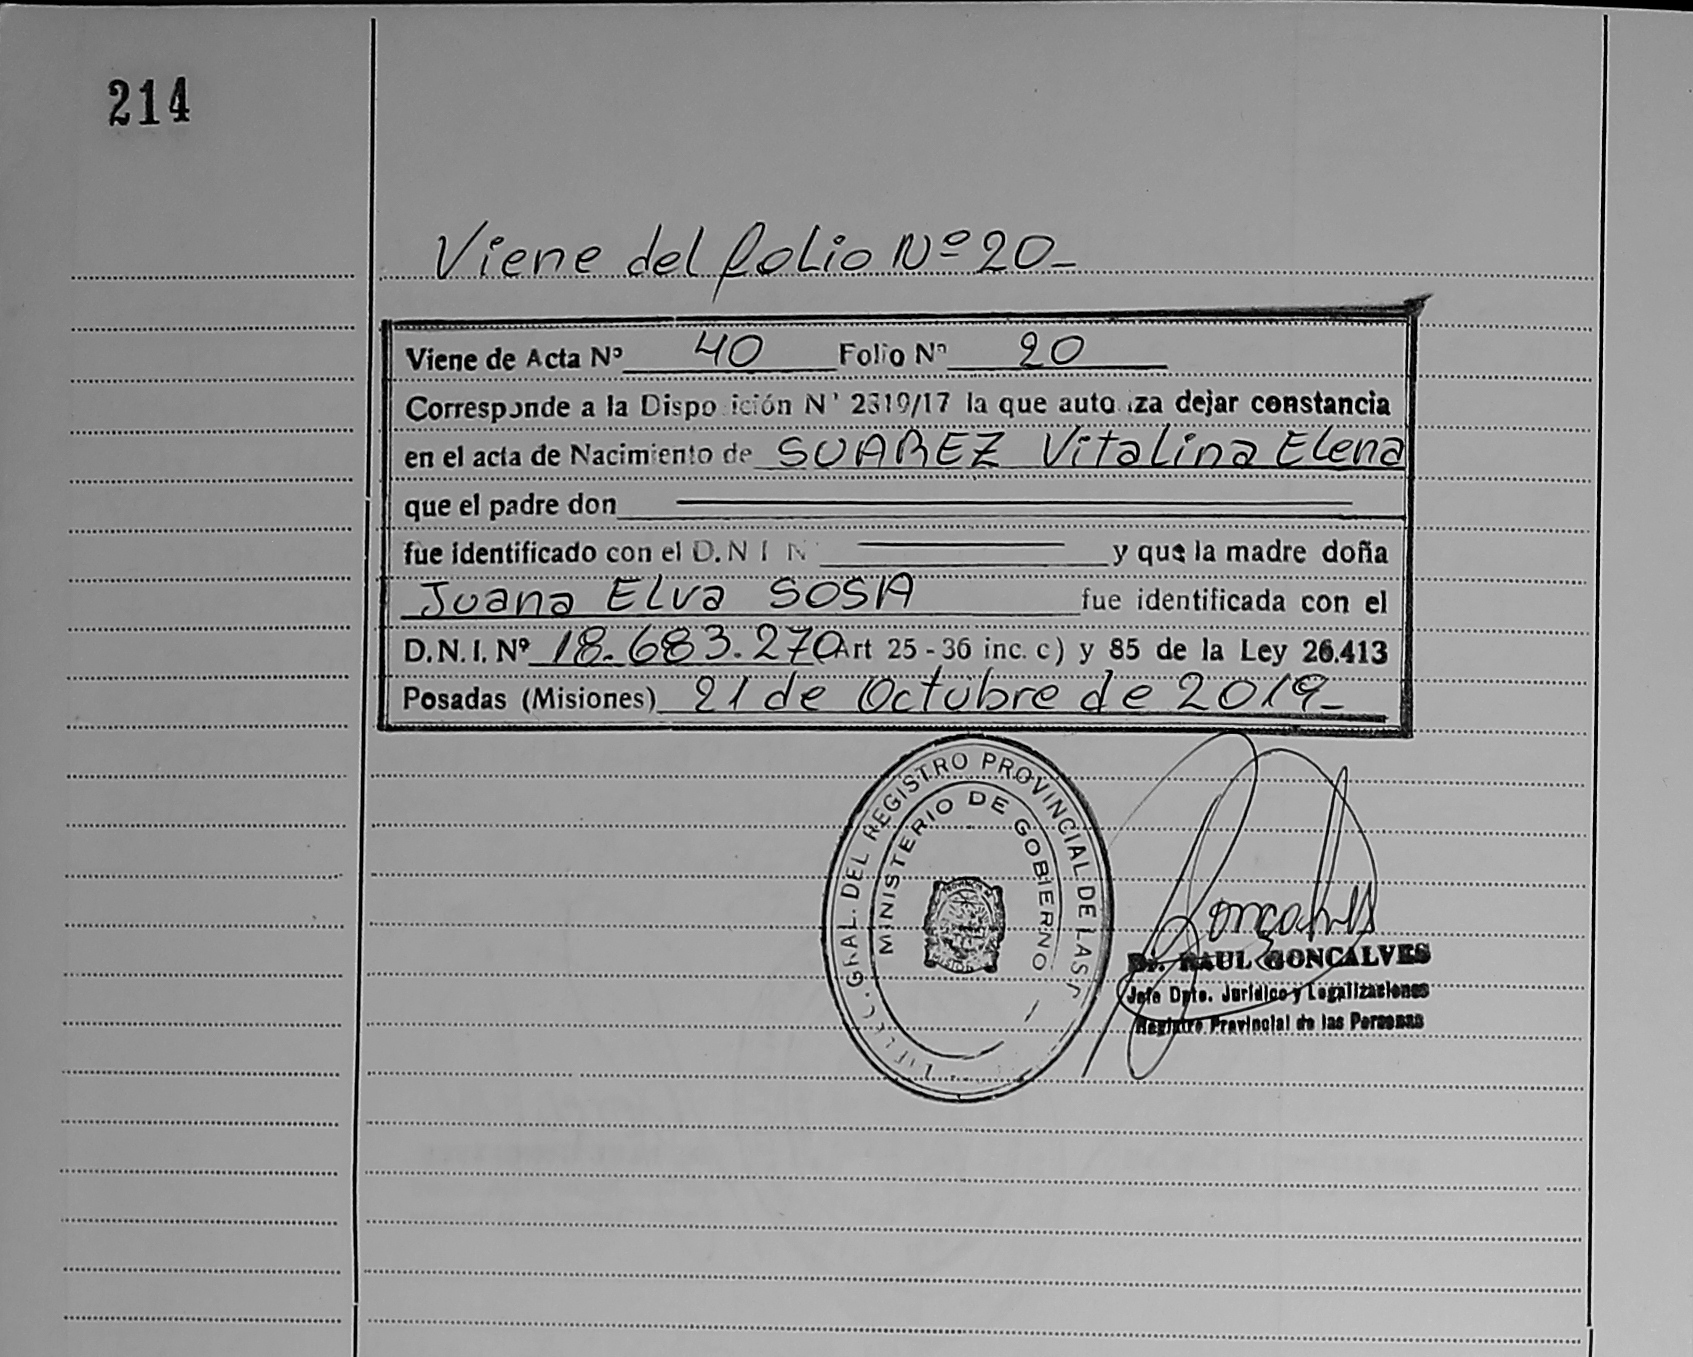 214
Viene del folio Nº 20-
Viene de Acta Nº 40 Folio Nº 20
Corresponde a la Disposición Nº 2319/17 la que autoriza dejar constancia
en el acta de Nacimiento de SUAREZ Vitalina Elena
que el padre don
fue identificado con el D.N.I N y que la madre doña
Juana Elva SOSA fue identificada con el
D.N.I. Nº 18.683.270 Art 25 - 36 inc. c) y 85 de la Ley 26.413
Posadas (Misiones) 21 de Octubre de 2019-
GRAL. DEL REGISTRO PROVINCIAL DE LAS P
MINISTERIO DE GOBIERNO
Goncalves
Dr. RAUL GONCALVES
Jefe Dpto. Jurídico y Legalizaciones
Registro Provincial de las Personas